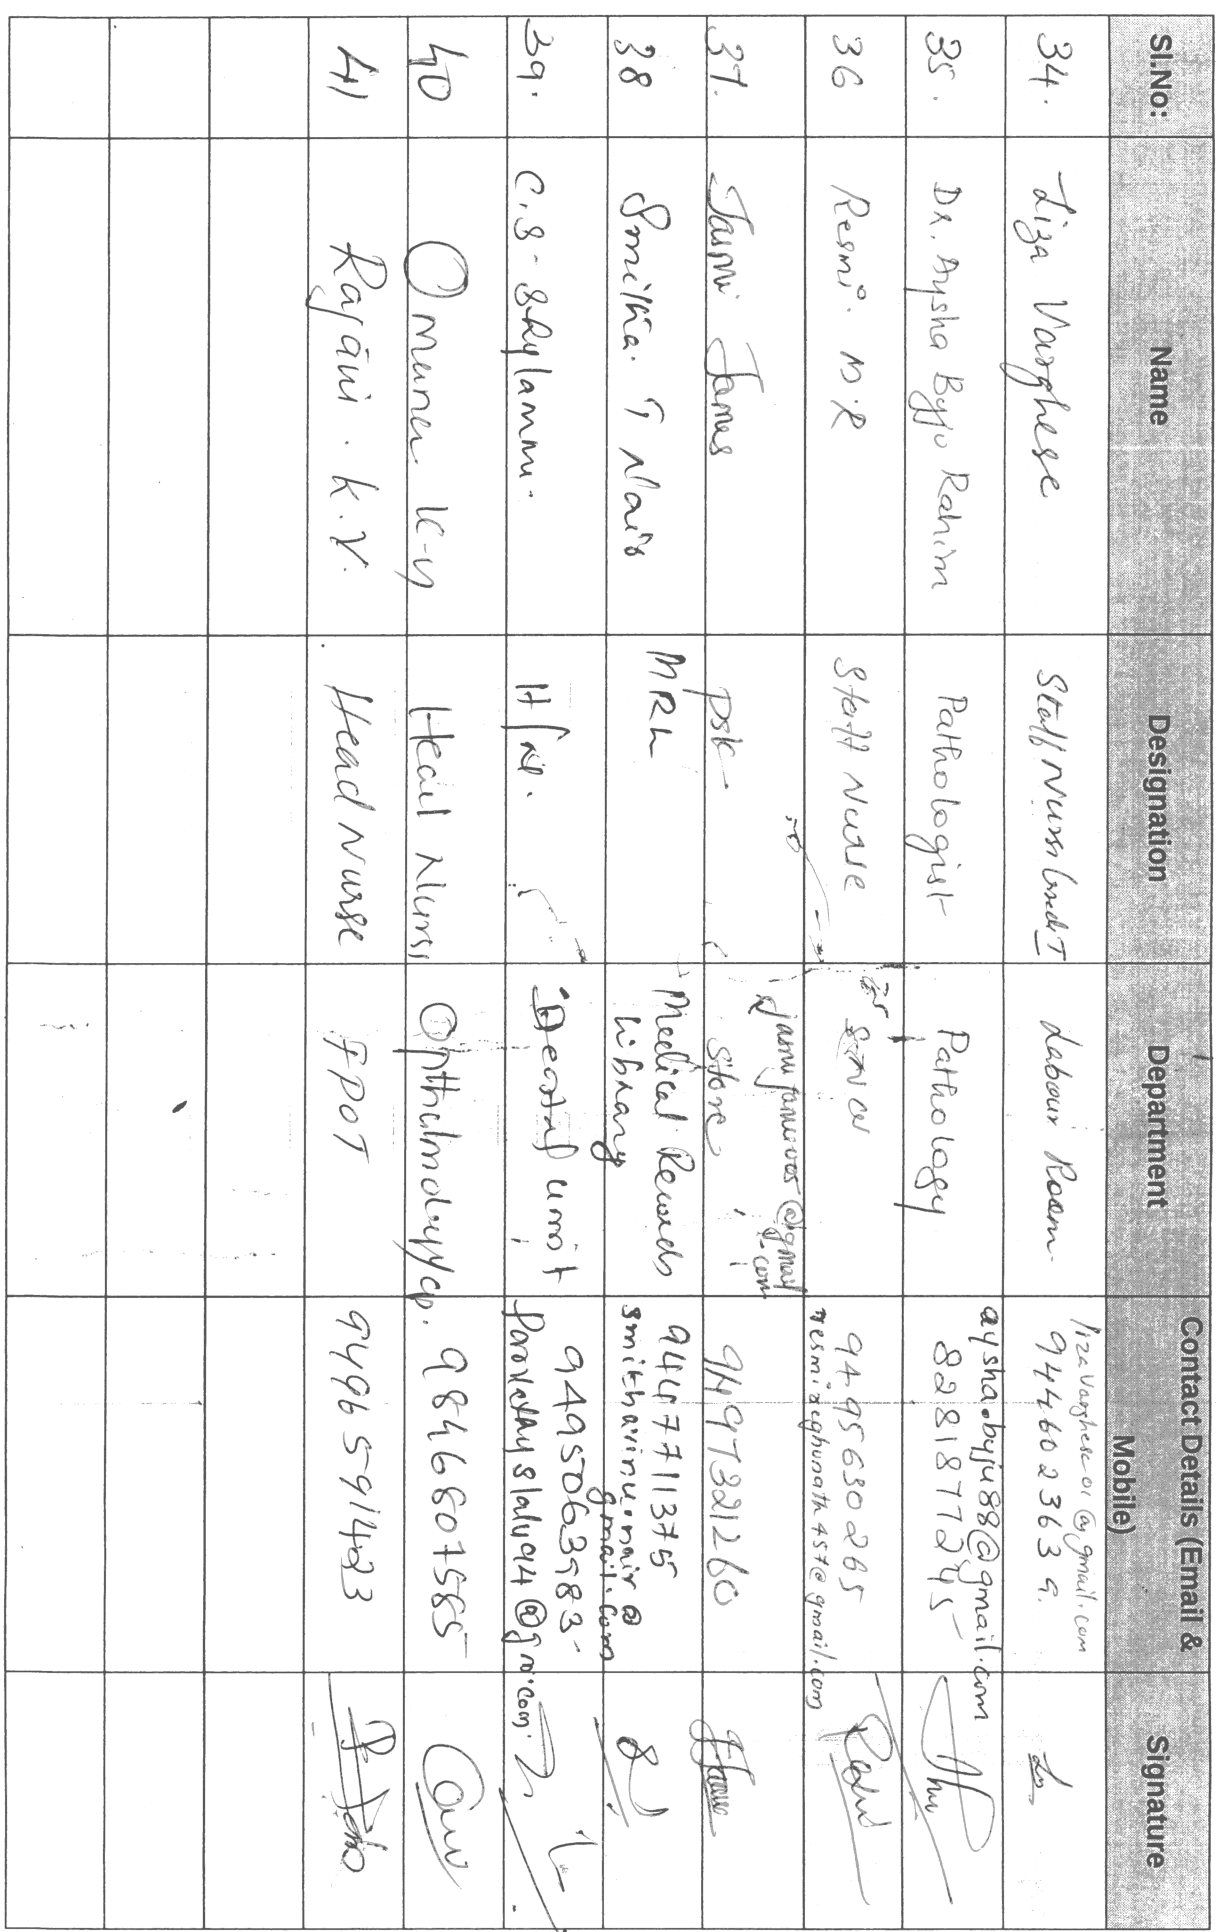 Sl.No: Name Designation Department Contact Details (Email & Mobile) Signature
34. Liza Varghese Staff Nurse Grade I Labour Room.
lizavarghese01@gmail.com
9446023639.
35. Dr. Aysha Byju Rahim Pathologist Pathology
aysha.byju88@gmail.com
8281877245
36 Resmi. M.R Staff Nurse
9495630265
resmireghunath457@gmail.com
37. Jasmi James PSK Store 9497321260
38 Smitha. T Nair MRL Medical Records Library
9447711375
smithavinu.nair@gmail.com
39. C.S. Shylamma. unit
9495063983
40 Omana K-n Head Nurse 9846807585
41 Rajani. K.V. Head Nurse FPOT 9496591423